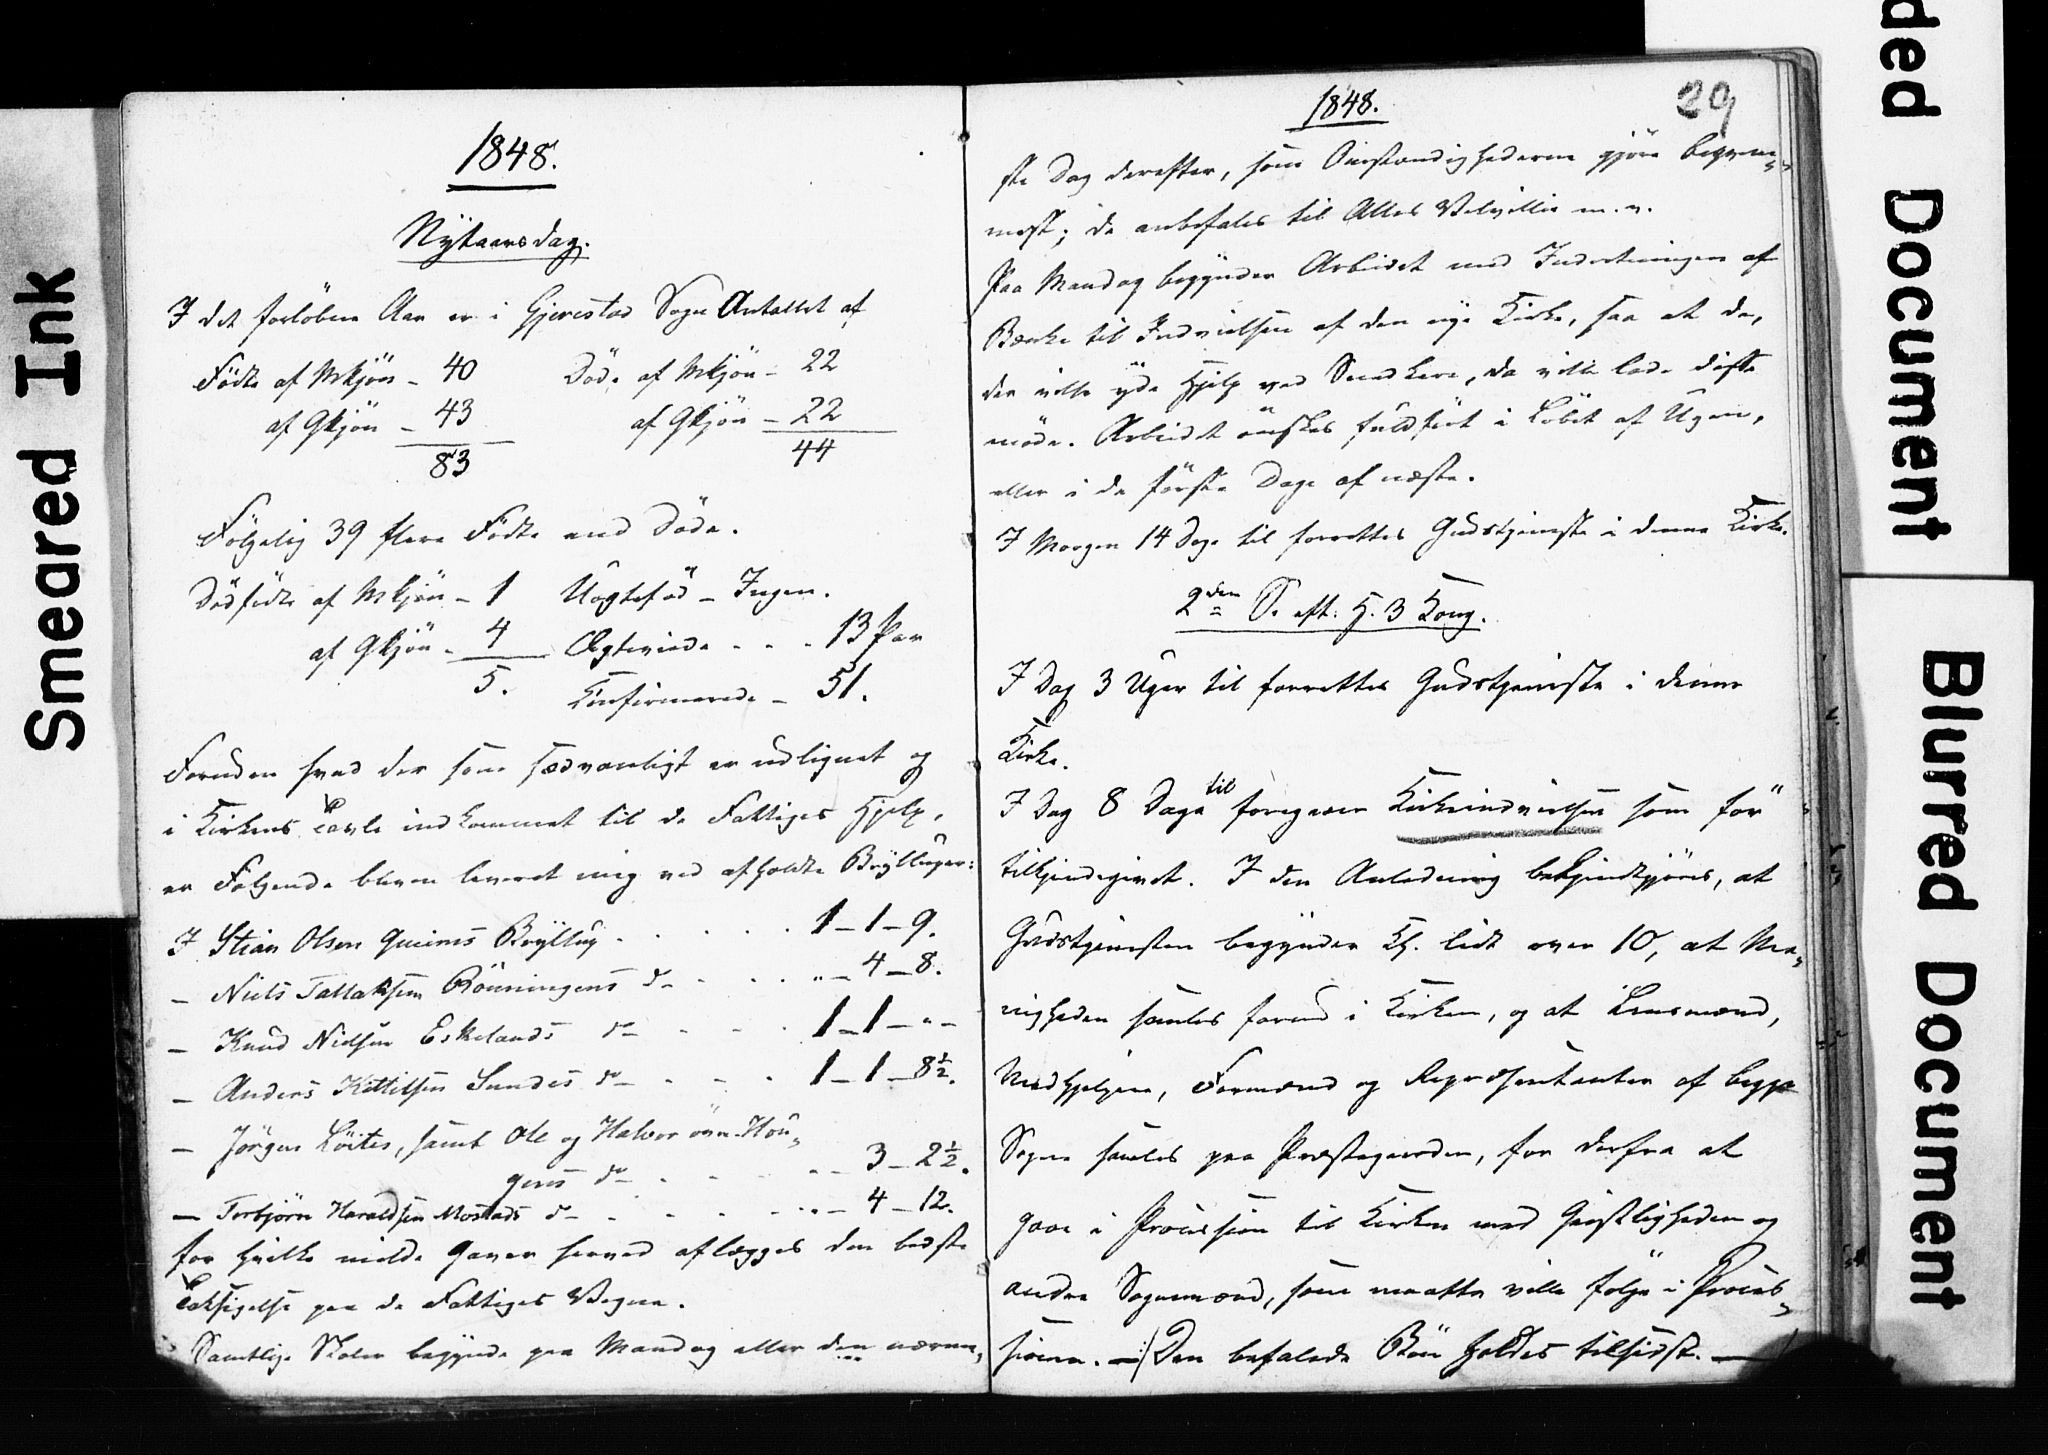 1848.
Nÿtaarsdag.
I det forløbne Aar er i Gjerestad Sogn Antallet af
Fødte af Mkjøn - 40 Døde af Mkjøn - 22
af Qkjøn - 43 af Qkjøn - 22
83 44
Følgelig 39 flere Fødte end Døde.
Dødfødte af Mkjøn - 1 Uægtefød - Ingen.
af Qkjøn - 4 Ægteviede - - - 13 Par
5. Confirmerede - 51.
Foruden hvad der som sædvanligt er udlignet og
i Kirkens Tavle indkommet til de Fattiges Hjelp,
er Følgende bleven leveret mig ved afholdte Brÿlluper:
I Stian Olsen Qveims Brÿllup . . . . . 1 - 1 - 9.
- Niels Tallaksen Rönningens do - . . „ - 4 - 8.
- Knud Nielsen Eskelands do - - . 1 - 1 - „ -
- Anders Kittilsen Sundes do - . - . 1 - 1 - 8½.
- Jörgen Löites, samt Ole og Halvor övre Hou-
gens do - . - . „ - 3 - 2½.
- Torbjörn Haraldsen Mostads do - . - . „ - 4 - 12.
for hvilke milde Gaver herved aflægges den bedste
Taksigelse paa de Fattiges Vegne.
Samtlige Skoler begÿnde paa Mandag eller den nærme-
1848.
29
ste Dag derefter, som Omstændighederne gjøre beqvem-
mest; de anbefales til Alles Velvillie m.v.
Paa Mandag begÿnder Arbeidet med Indretningen af
Bænke til Indvielsen af den nye Kirke, saa at de,
der ville ÿde Hjelp ved Snedkere, da ville lade disse
møde. Arbeidet ønskes fuldført i Løbet af Ugen,
eller i de første Dage af næste.
I Morgen 14 Dage til forrettes Gudstjeneste i denne Kirke.
2den S. eft. H. 3 Kong.
I Dag 3 Uger til forrettes Gudstjeneste i denne
Kirke.
I Dag 8 Dage til foregaaer Kirkeindvielsen som før
tilkjendegivet. I den Anledning bekjendtgjøres, at
Gudstjenesten begÿnder Kl. lidt over 10, at Me-
nigheden samles forud i Kirken, og at Lensmænd,
Medhjelpere, Formænd og Repræsentanter af begge
Sogne samles paa Præstegaarden, for derfra at
gaae i Procession til Kirken med Geistligheden og
andre Sognemænd, som maatte ville følge i Proces-
sionen. - Den befalede Bøn holdes tilsidst. -
Smeared Ink
ded Document
Blurred Document